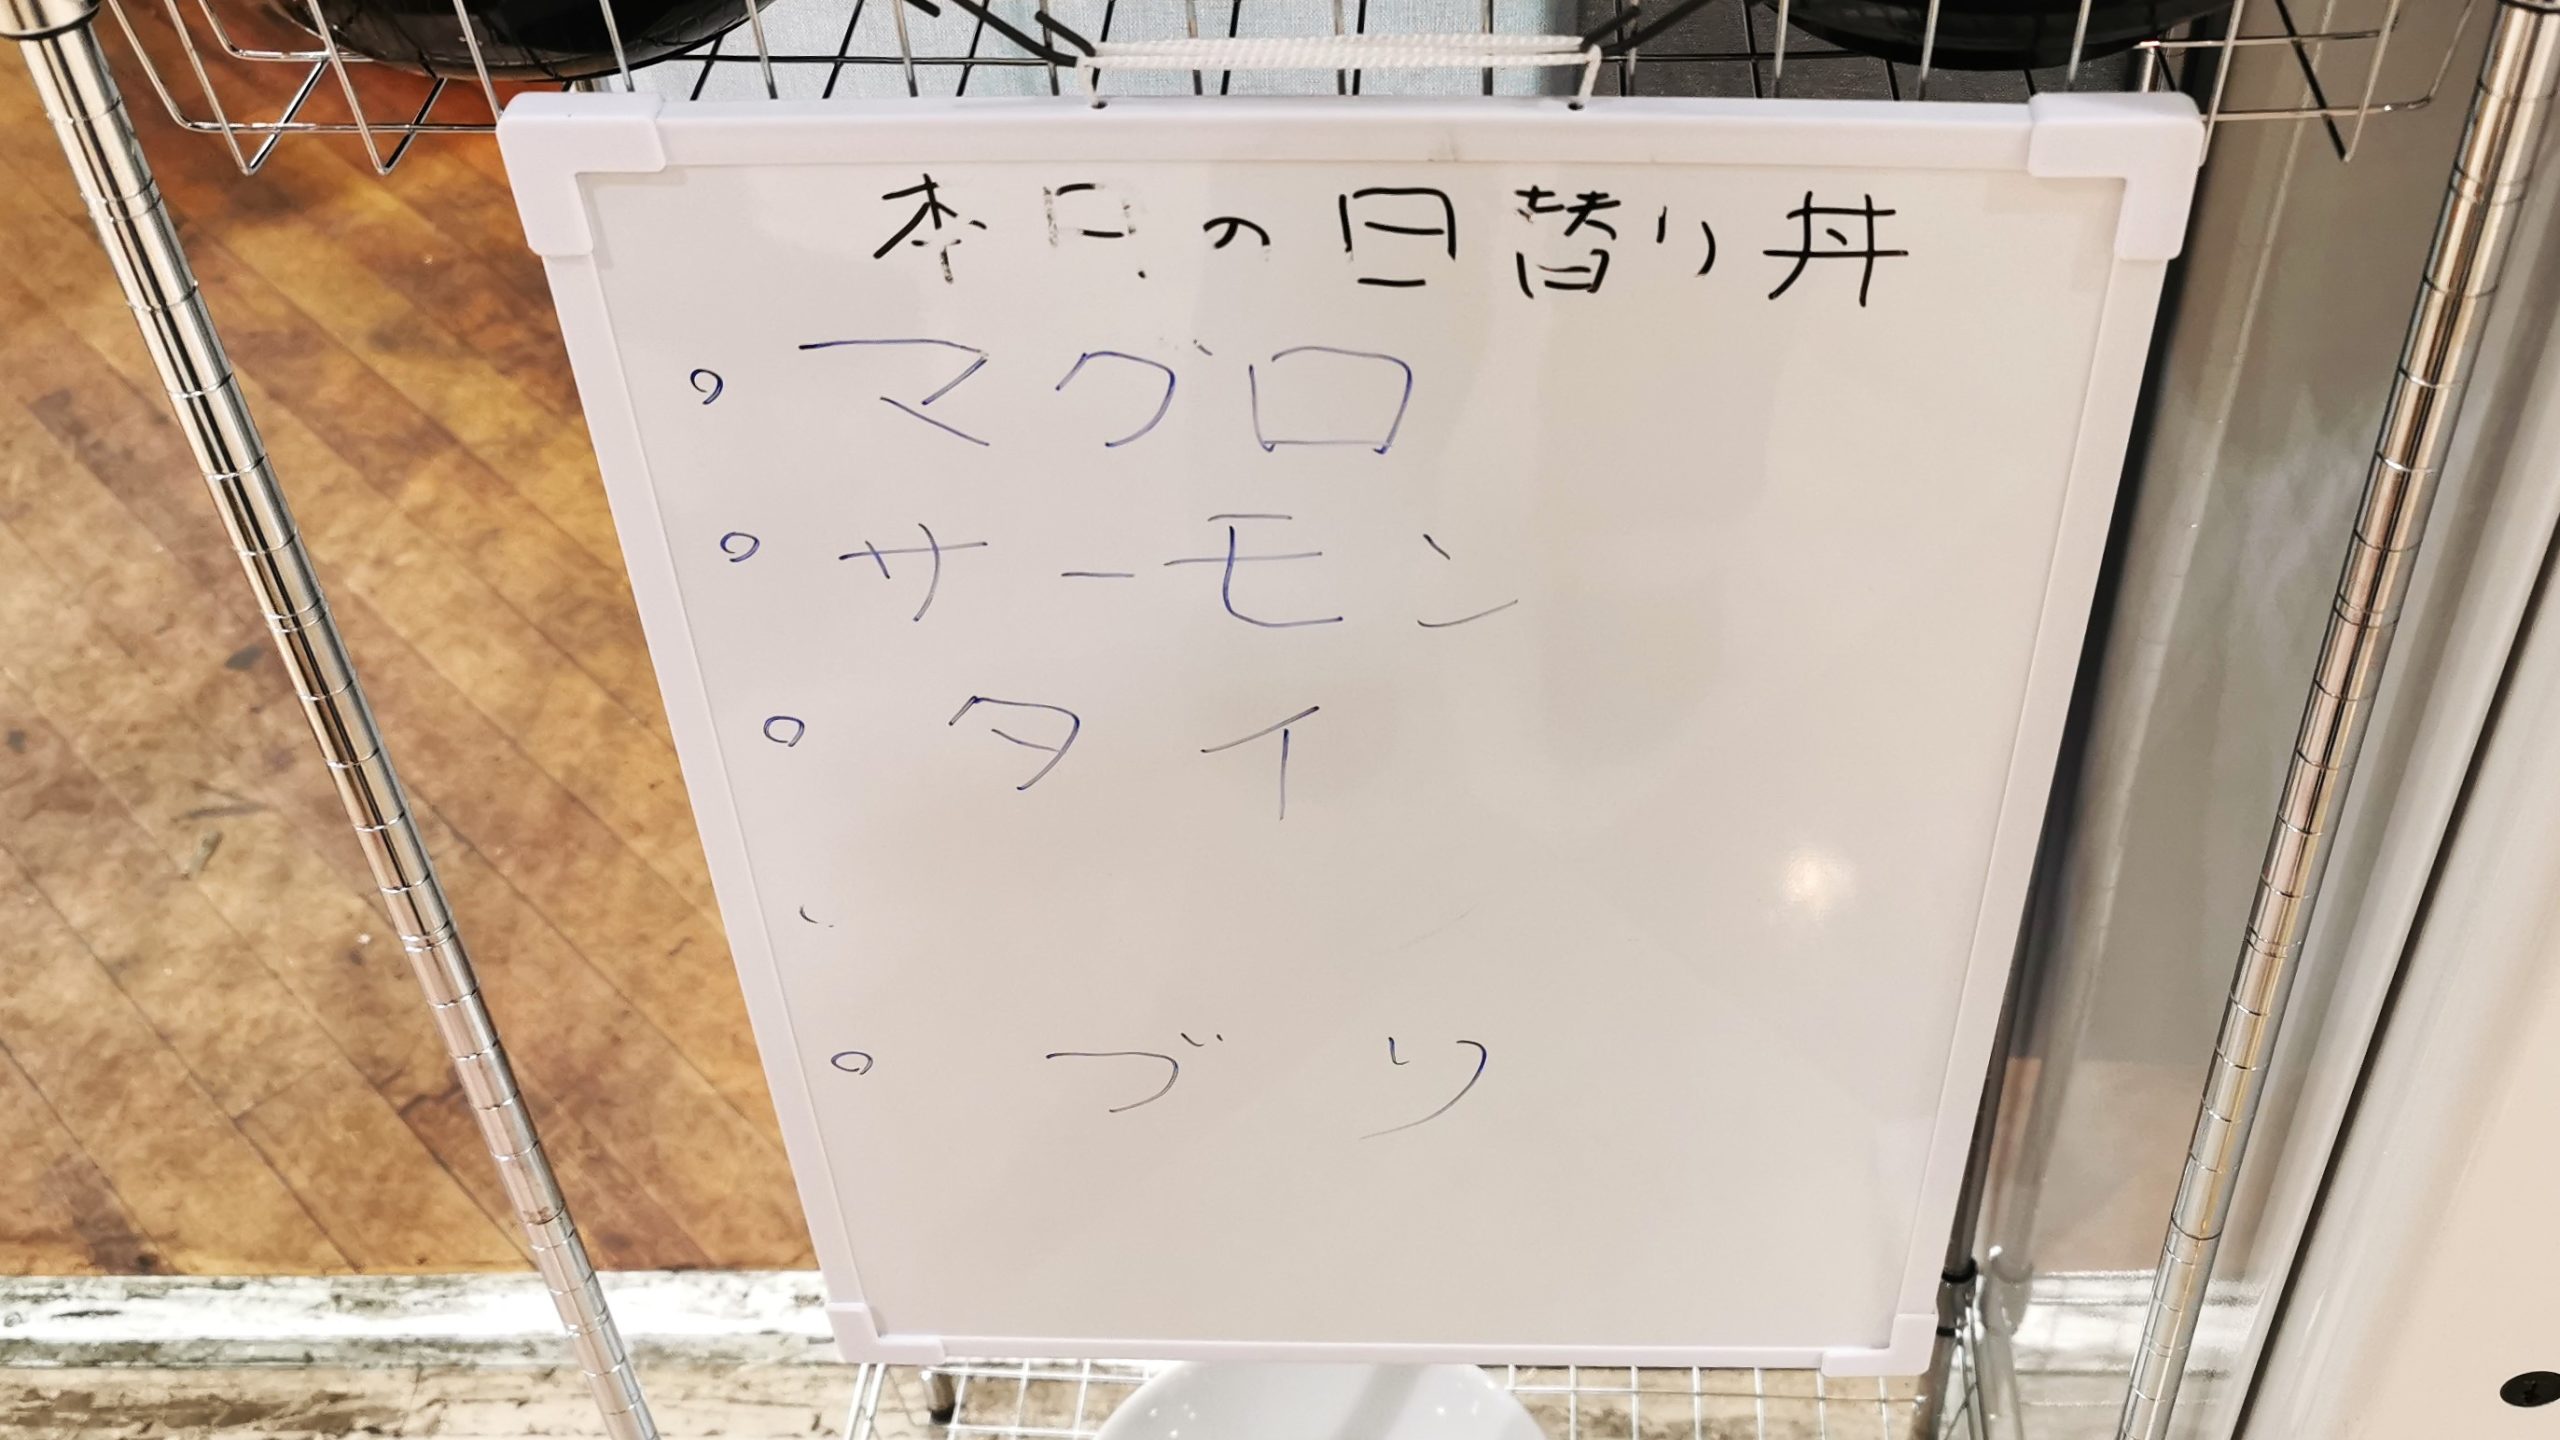 本日の日替り丼
。マグロ
。サーモン
。タイ
。ブリ